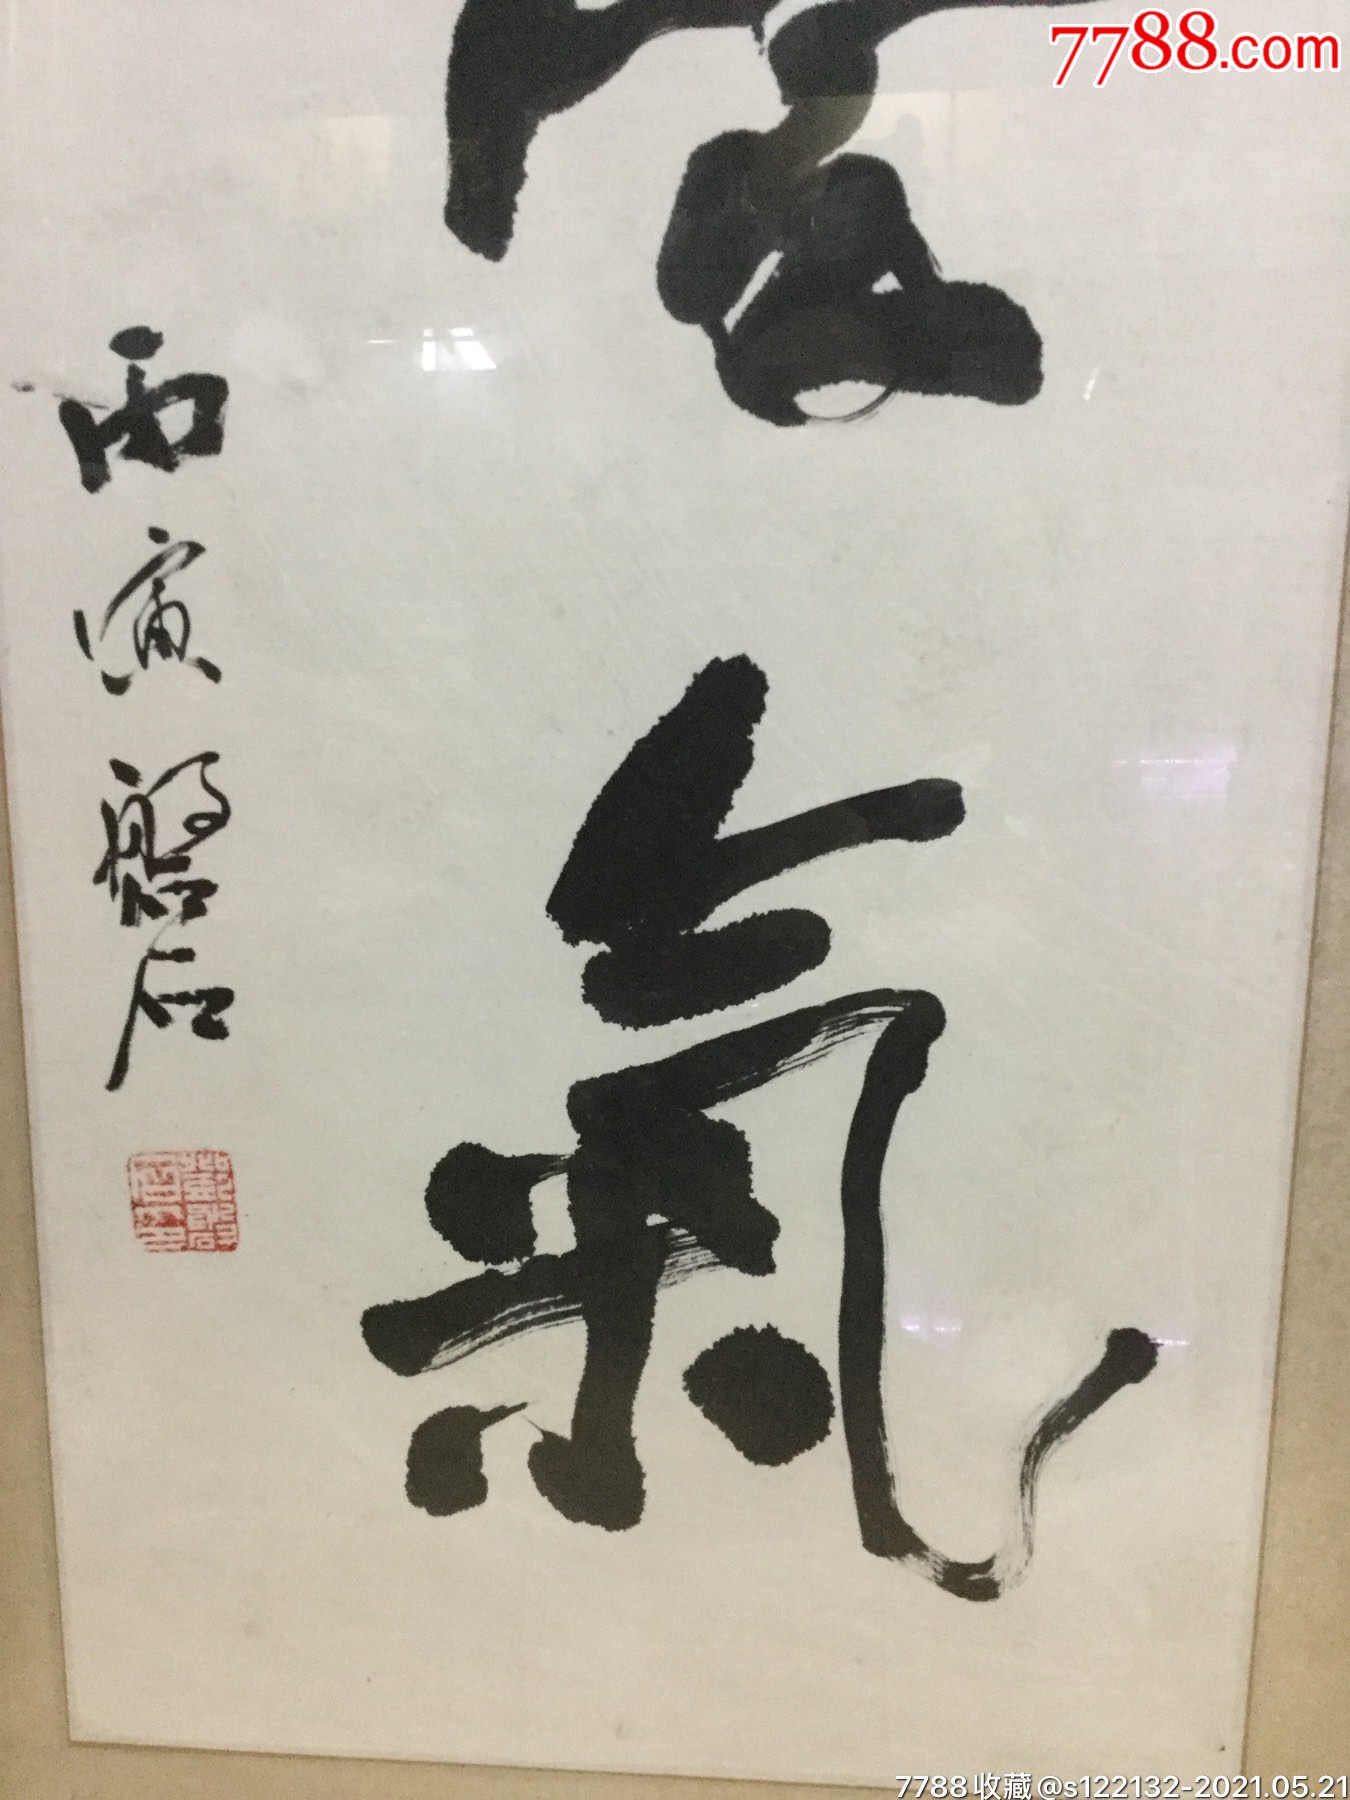 7788.com
氣
丙寅磐石
7788收藏@s122132-2021.05.21